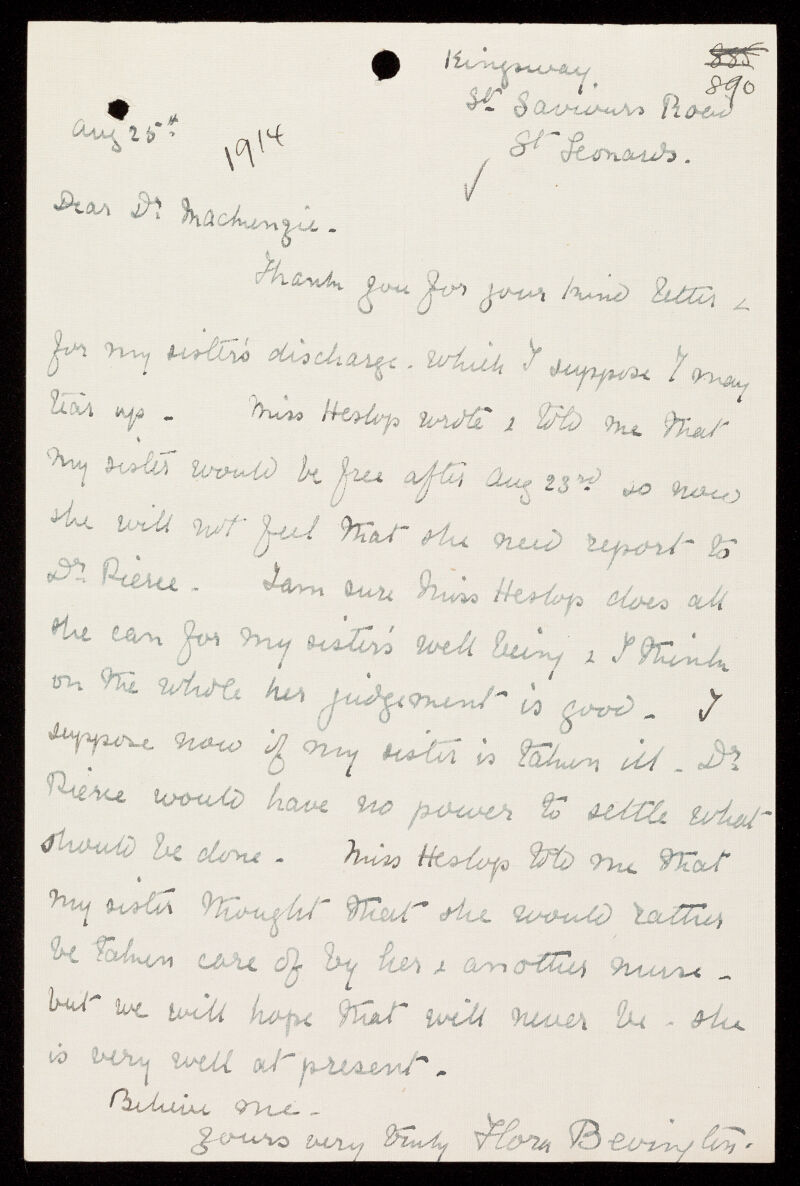 Kingsway
885
890
St Saviours Road
St Leonards.
Aug 25th
1914
Dear Dr Mackenzie -
Thank you for your kind letter &
for my sister's discharge. which I suppose I may
tear up - Miss Heslop wrote & told me that
my sister would be free after Aug 23rd so now
she will not feel that she need report to
Dr Pierce - I am sure Miss Heslop does all
she can for my sister's well being & I think
on the whole her judgement is good - I
suppose now if my sister is taken ill - Dr
Pierce would have no power to settle what
should be done - Miss Heslop told me that
my sister thought that she would rather
be taken care of by her & another nurse -
but we will hope that will never be - she
is very well at present -
Believe me -
yours very truly Flora Bevington.